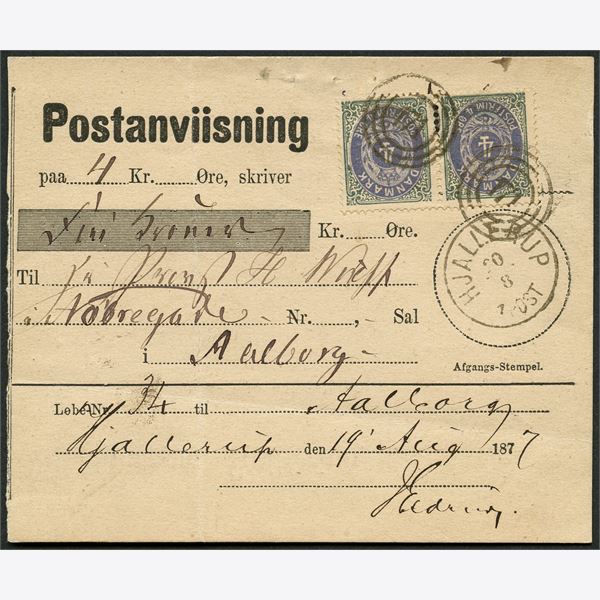 Postanviisning
paa 4 Kr. Øre, skriver
Fiir Kroner Kr. Øre.
Til
i Nörregade Nr. , Sal
i Aalborg
Afgangs-Stempel.
Løbe-Nr. 34 til Aalborg
Hjallerup den 19' Aug 1877
DANMARK
DANMARK
HJALLERUP
20
8
1 POST